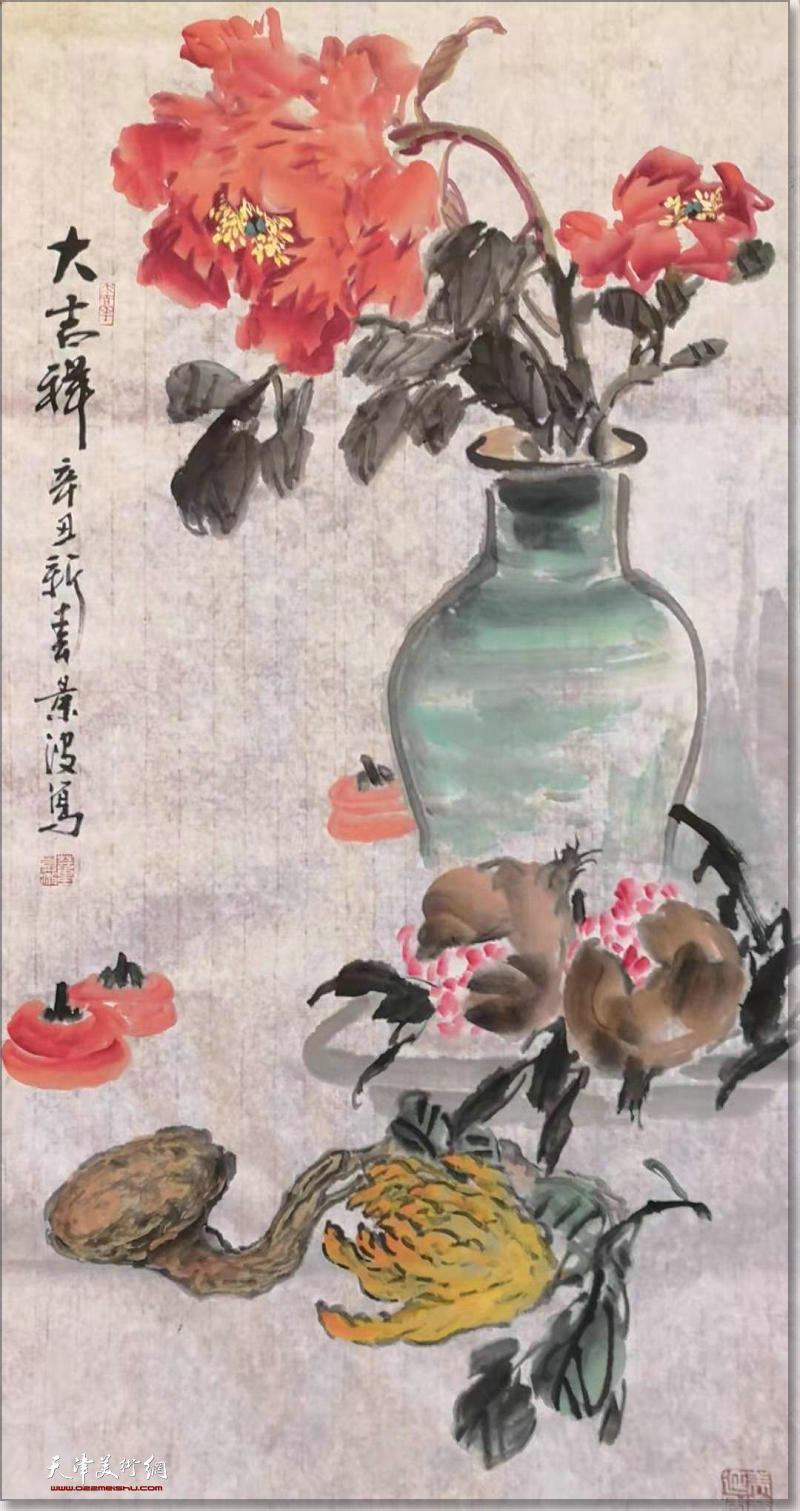 大吉祥
辛丑新春景波写
天津美術網
www.022meishu.com